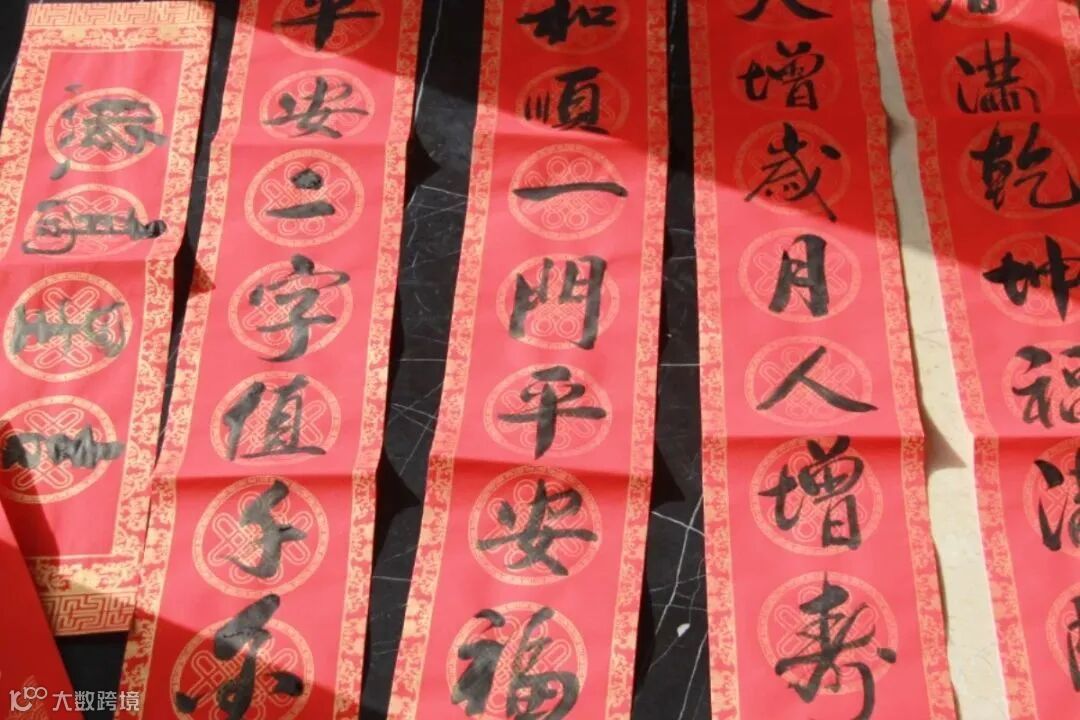 春滿乾坤福滿
天增歲月人增壽
和順一門平安福
平安二字值千金
大数跨境